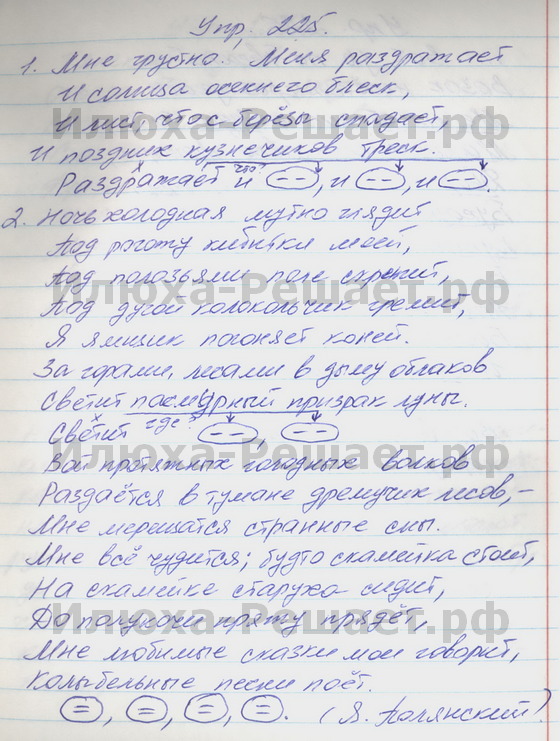 Упр. 225.
1. Мне грустно. Меня раздражает
И солнца осеннего блеск,
И лист, что с берёзы спадает,
И поздних кузнечиков треск.
что?
Раздражает и , и , и .
2. Ночь холодная мутно глядит
Под рогожу кибитки моей,
Под полозьями поле скрипит,
Под дугой колокольчик гремит,
Я ямщик погоняет коней.
За горами, лесами в дыму облаков
Светит пасмурный призрак луны.
Светит где? ,
Вой протяжных голодных волков
Раздаётся в тумане дремучих лесов, –
Мне мерещатся странные сны.
Мне всё чудится; будто скамейка стоит,
На скамейке старуха сидит,
До полуночи пряжу прядёт,
Мне любимые сказки мои говорит,
Колыбельные песни поёт.
= , = , = , = . (Я. Полянский.)
Илюха-Решает.рф
Илюха-Решает.рф
Илюха-Решает.рф
Илюха-Решает.рф